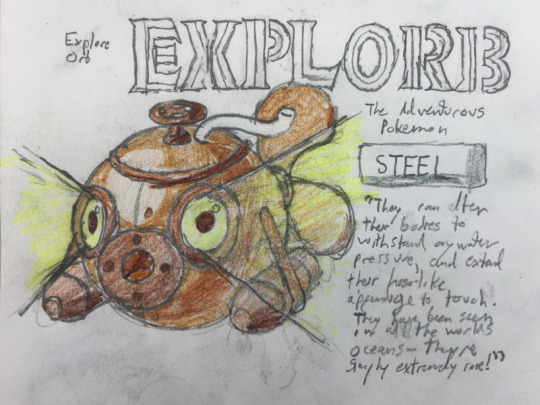 EXPLORB
Explore
Orb
The Adventurous
Pokemon
STEEL
"They can alter
their bodies to
withstand any water
pressure, and extend
their hose-like
appendage to touch.
They have been seen
in all the world's
oceans— they're
simply extremely rare!"